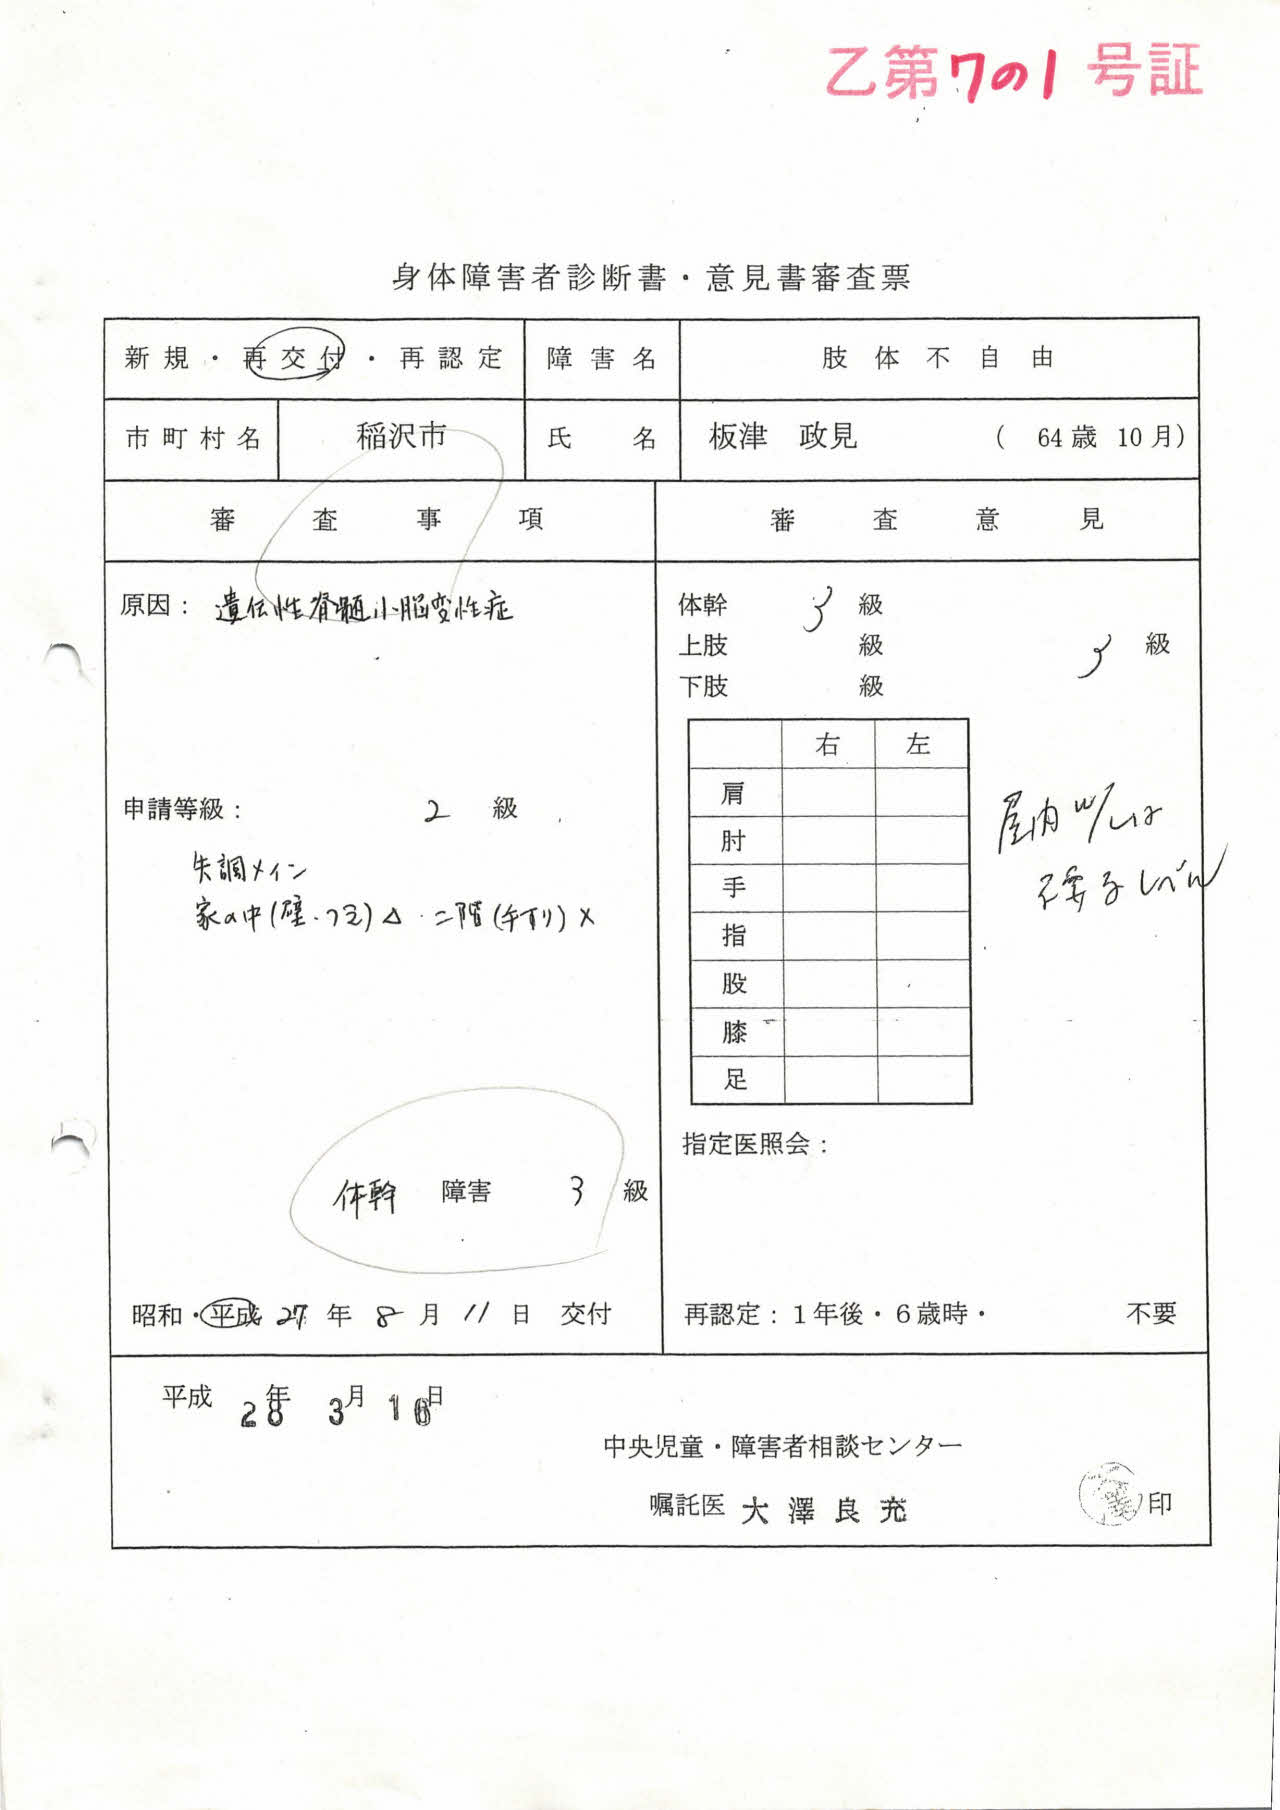 乙第7の1号証
身体障害者診断書・意見書審査票
新規・再交付・再認定 障害名 肢体不自由
市町村名 稲沢市 氏名 板津 政見 ( 64歳 10月)
審査事項 審査意見
原因: 遺伝性脊髄小脳変性症
体幹 3 級
上肢 級 3 級
下肢 級
右 左
肩
肘
手
指
股
膝
足
申請等級: 2 級
失調メイン
家の中(壁・つたい)△ 二階(手すり)×
屋内
不要なレベル
指定医照会:
体幹 障害 3 級
昭和・平成 27 年 8 月 11 日 交付
再認定:1年後・6歳時・ 不要
平成 28年 3月 16日
中央児童・障害者相談センター
嘱託医 大澤良充 印